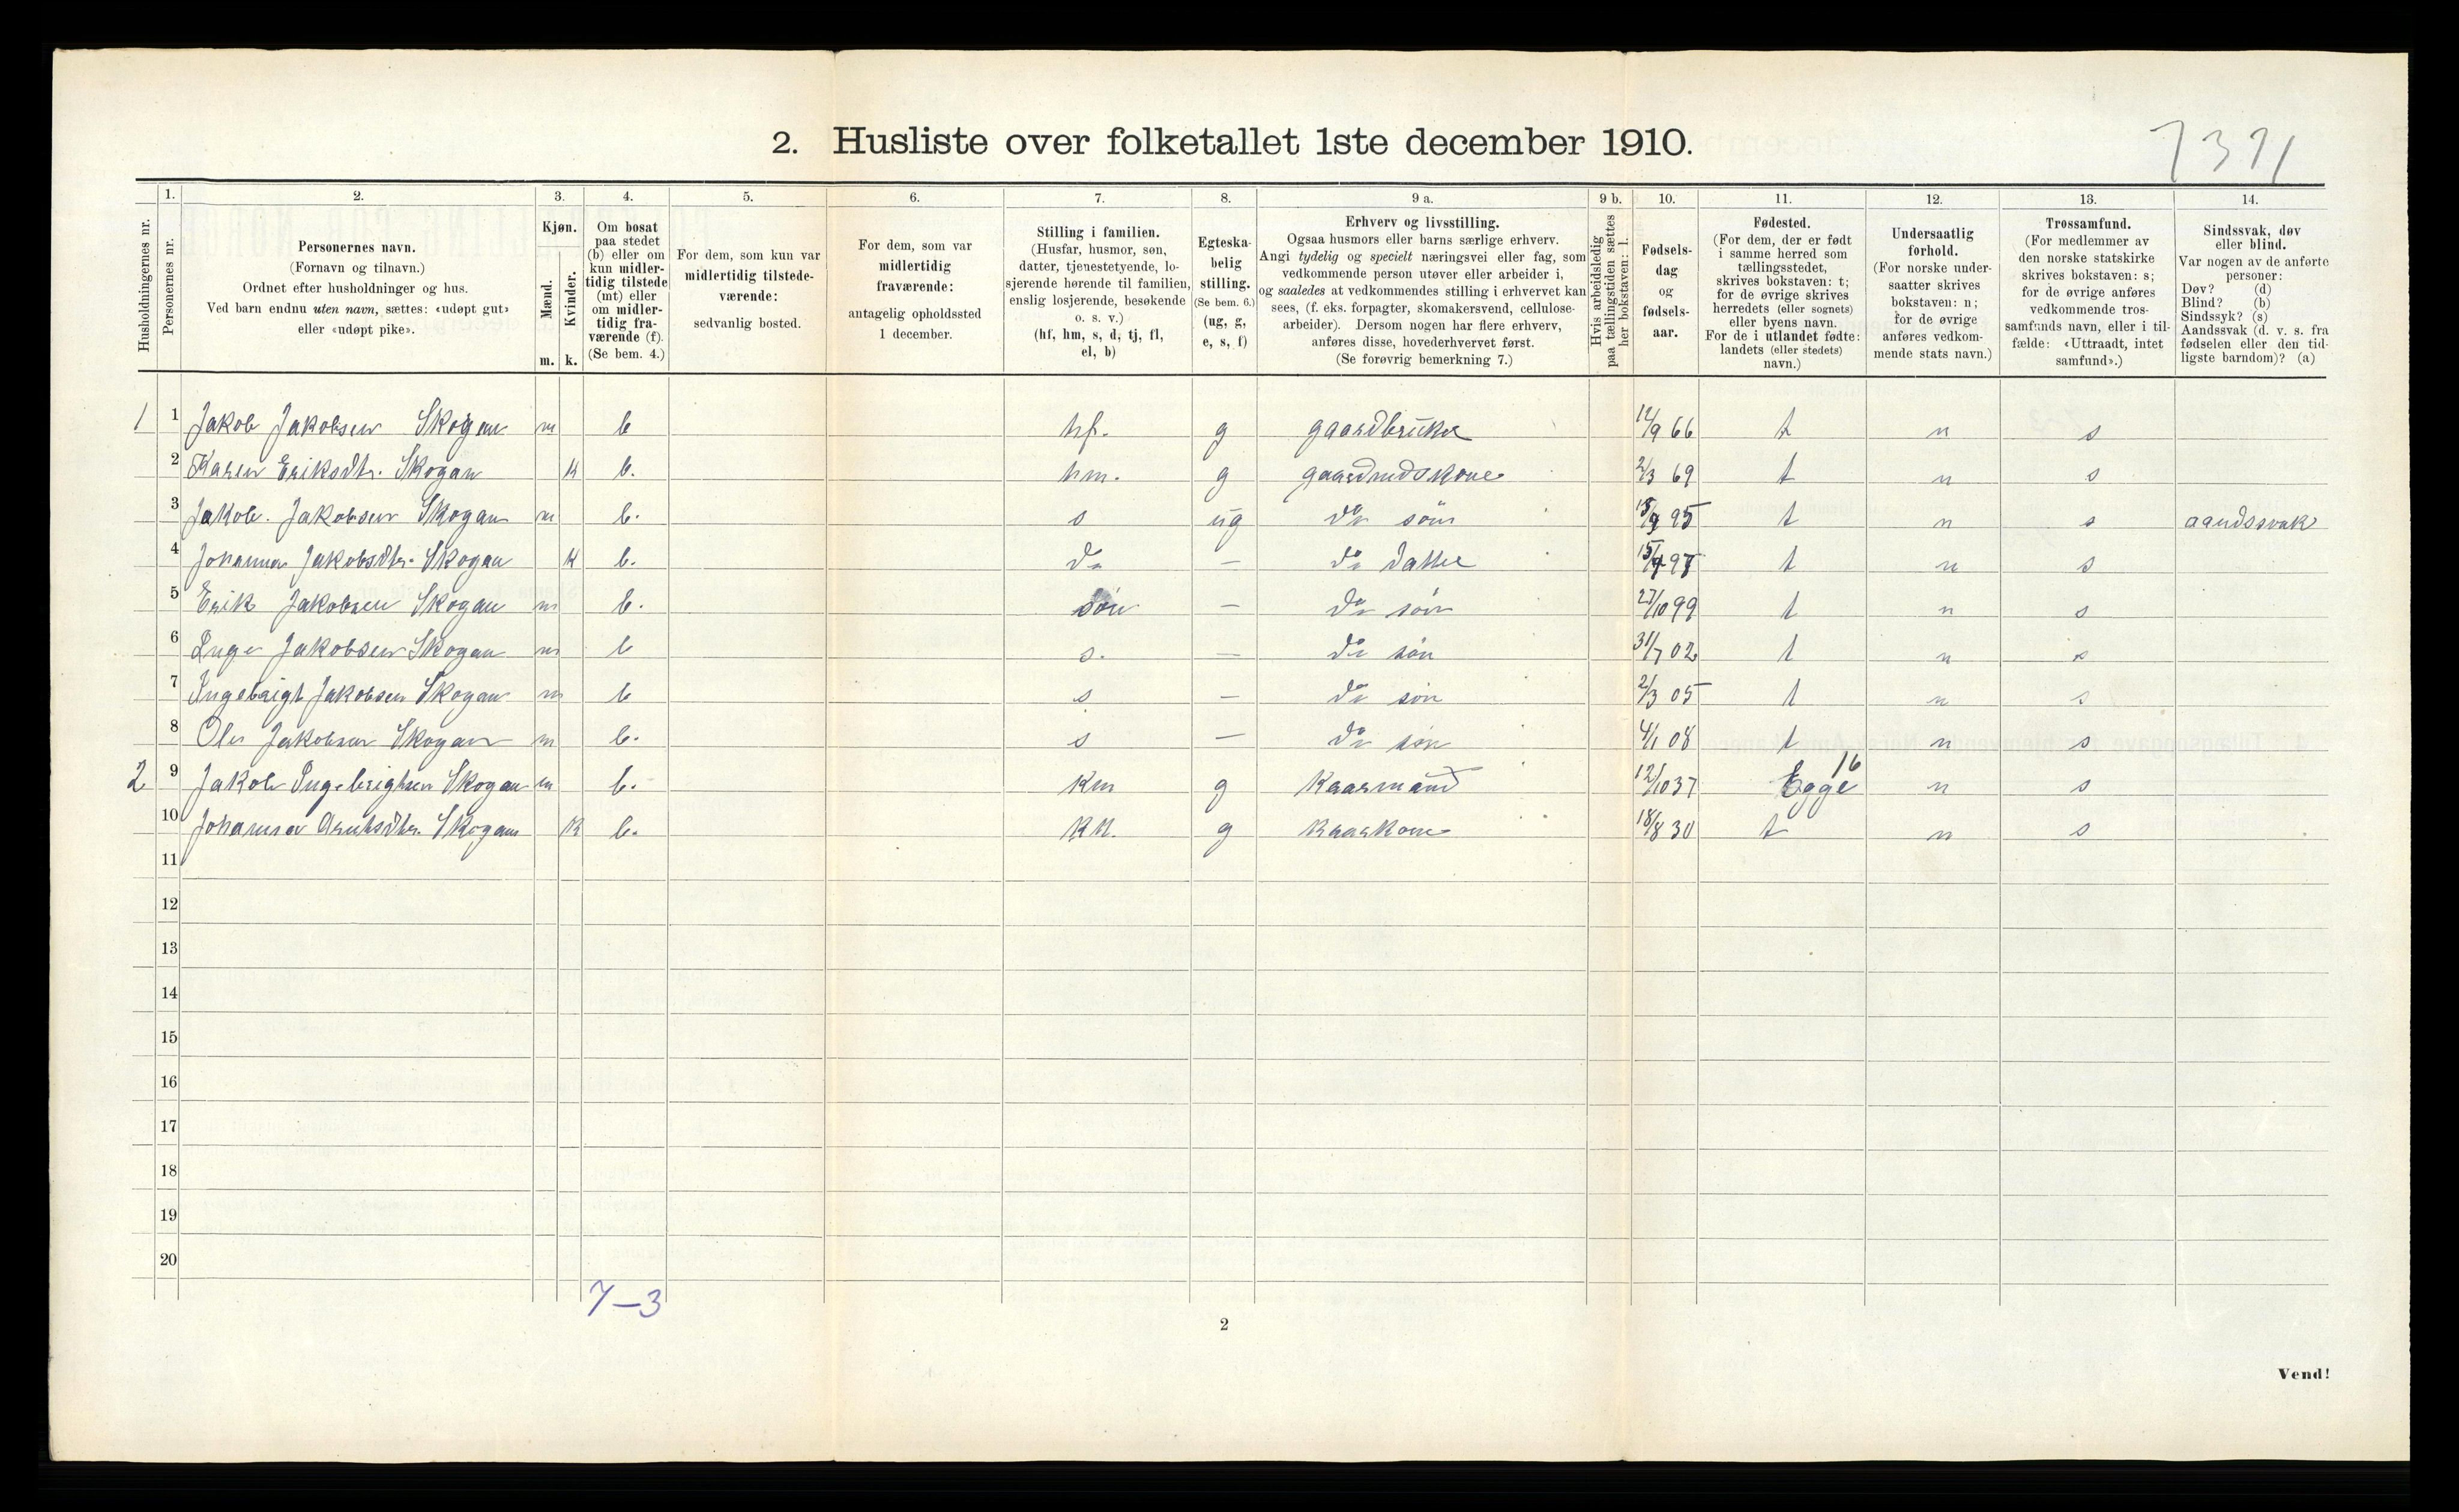 2. Husliste over folketallet 1ste december 1910.
7371
Husholdningernes nr.
1.
Personernes nr.
2.
Personernes navn.
(Fornavn og tilnavn.)
Ordnet efter husholdninger og hus.
Ved barn endnu uten navn, sættes: «udøpt gut»
eller «udøpt pike».
3.
Kjøn.
Mænd.
Kvinder.
m. k.
4.
Om bosat
paa stedet
(b) eller om
kun midler-
tidig tilstede
(mt) eller
om midler-
tidig fra-
værende (f).
(Se bem. 4.)
5.
For dem, som kun var
midlertidig tilstede-
værende:
sedvanlig bosted.
6.
For dem, som var
midlertidig
fraværende:
antagelig opholdssted
1 december.
7.
Stilling i familien.
(Husfar, husmor, søn,
datter, tjenestetyende, lo-
sjerende hørende til familien,
enslig losjerende, besøkende
o. s. v.)
(hf, hm, s, d, tj, fl,
el, b)
8.
Egteska-
belig
stilling.
(Se bem. 6.)
(ug, g,
e, s, f)
9 a.
Erhverv og livsstilling.
Ogsaa husmors eller barns særlige erhverv.
Angi tydelig og specielt næringsvei eller fag, som
vedkommende person utøver eller arbeider i,
og saaledes at vedkommendes stilling i erhvervet kan
sees, (f. eks. forpagter, skomakersvend, cellulose-
arbeider). Dersom nogen har flere erhverv,
anføres disse, hovederhvervet først.
(Se forøvrig bemerkning 7.)
9 b.
Hvis arbeidsledig
paa tællingstiden sættes
her bokstaven: l.
10.
Fødsels-
dag
og
fødsels-
aar.
11.
Fødested.
(For dem, der er født
i samme herred som
tællingsstedet,
skrives bokstaven: t;
for de øvrige skrives
herredets (eller sognets)
eller byens navn.
For de i utlandet fødte:
landets (eller stedets)
navn.)
12.
Undersaatlig
forhold.
(For norske under-
saatter skrives
bokstaven: n;
for de øvrige
anføres vedkom-
mende stats navn.)
13.
Trossamfund.
(For medlemmer av
den norske statskirke
skrives bokstaven: s;
for de øvrige anføres
vedkommende tros-
samfunds navn, eller i til-
fælde: «Uttraadt, intet
samfund».)
14.
Sindssvak, døv
eller blind.
Var nogen av de anførte
personer:
Døv? (d)
Blind? (b)
Sindssyk? (s)
Aandssvak (d. v. s. fra
fødselen eller den tid-
ligste barndom)? (a)
1 1 Jakob Jakobsen Skogan m b hf. g gaardbruker 12/9 66 t n s
2 Karen Eriksdtr. Skogan k b. hm. g gaardmdskone 2/3 69 t n s
3 Jakob. Jakobsen Skogan m b. s ug do søn 95 t n s aandssvak
4 Johanna Jakobsdtr. Skogan k b. da — do datter t n s
5 Erik Jakobsen Skogan m b. søn — do søn 27/10 99 t n s
6 Inge Jakobsen Skogan m b s. — do søn 31/7 02 t n s
7 Ingebrigt Jakobsen Skogan m b s — do søn 2/3 05 t n s
8 Ole Jakobsen Skogan m b. s — do søn 4/1 08 t n s
2 9 Jakob Ingebrigtsen Skogan m b. km g Kaarmand 12/10 37 Egge 16 n s
10 Johanna Arntsdtr. Skogan k b. kk. g Kaarkone 18/8 30 t n s
11
12
13
14
15
16
17
18
19
20
7–3
2
Vend!